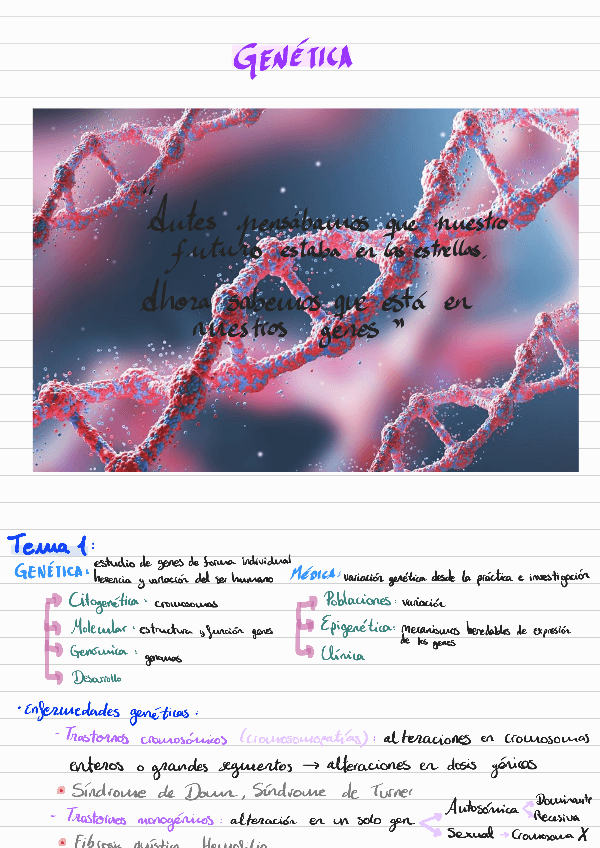 GENÉTICA
"Antes pensábamos que nuestro
futuro estaba en las estrellas,
ahora sabemos que está en
nuestros genes"
Tema 1:
GENÉTICA: estudio de genes de forma individual
herencia y variación del ser humano
MÉDICA: variación genética desde la práctica e investigación
Citogenética: cromosomas
Molecular: estructura y función genes
Genómica: genomas
Desarrollo
Poblaciones: variación
Epigenética: mecanismos heredables de expresión
de los genes
Clínica
· Enfermedades genéticas:
- Trastornos cromosómicos (cromosomopatías): alteraciones en cromosomas
enteros o grandes segmentos → alteraciones en dosis génicas
Síndrome de Down, Síndrome de Turner
- Trastornos monogénicos: alteración en un solo gen
Autosómica
Dominante
Recesiva
Sexual → Cromosoma X
Fibrosis quística, Hemofilia